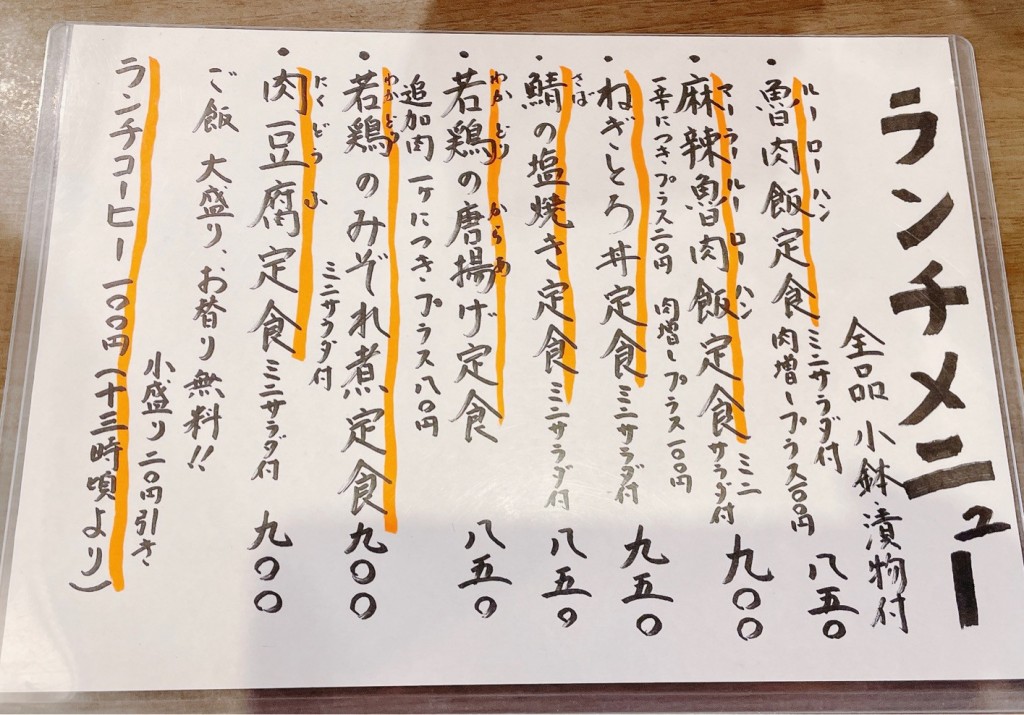 ランチメニュー
全品 小鉢・漬物付
・魯肉飯定食 ミニサラダ付 八五〇
ルーローハン
肉増しプラス一〇〇円
・麻辣魯肉飯定食 ミニサラダ付 九〇〇
マーラールーローハン
一辛につきプラス二〇円 肉増しプラス一〇〇円
・ねぎとろ丼定食 ミニサラダ付 九五〇
・鯖の塩焼き定食 ミニサラダ付 八五〇
さば
・若鶏の唐揚げ定食 八五〇
わかどり からあ
追加肉 一ケにつきプラス八〇円
・若鶏のみぞれ煮定食 九〇〇
わかどり
ミニサラダ付
・肉豆腐定食 ミニサラダ付 九〇〇
にくどうふ
ご飯 大盛り、お替り無料!!
小盛り二〇円引き
ランチコーヒー 一〇〇円(十三時頃より)